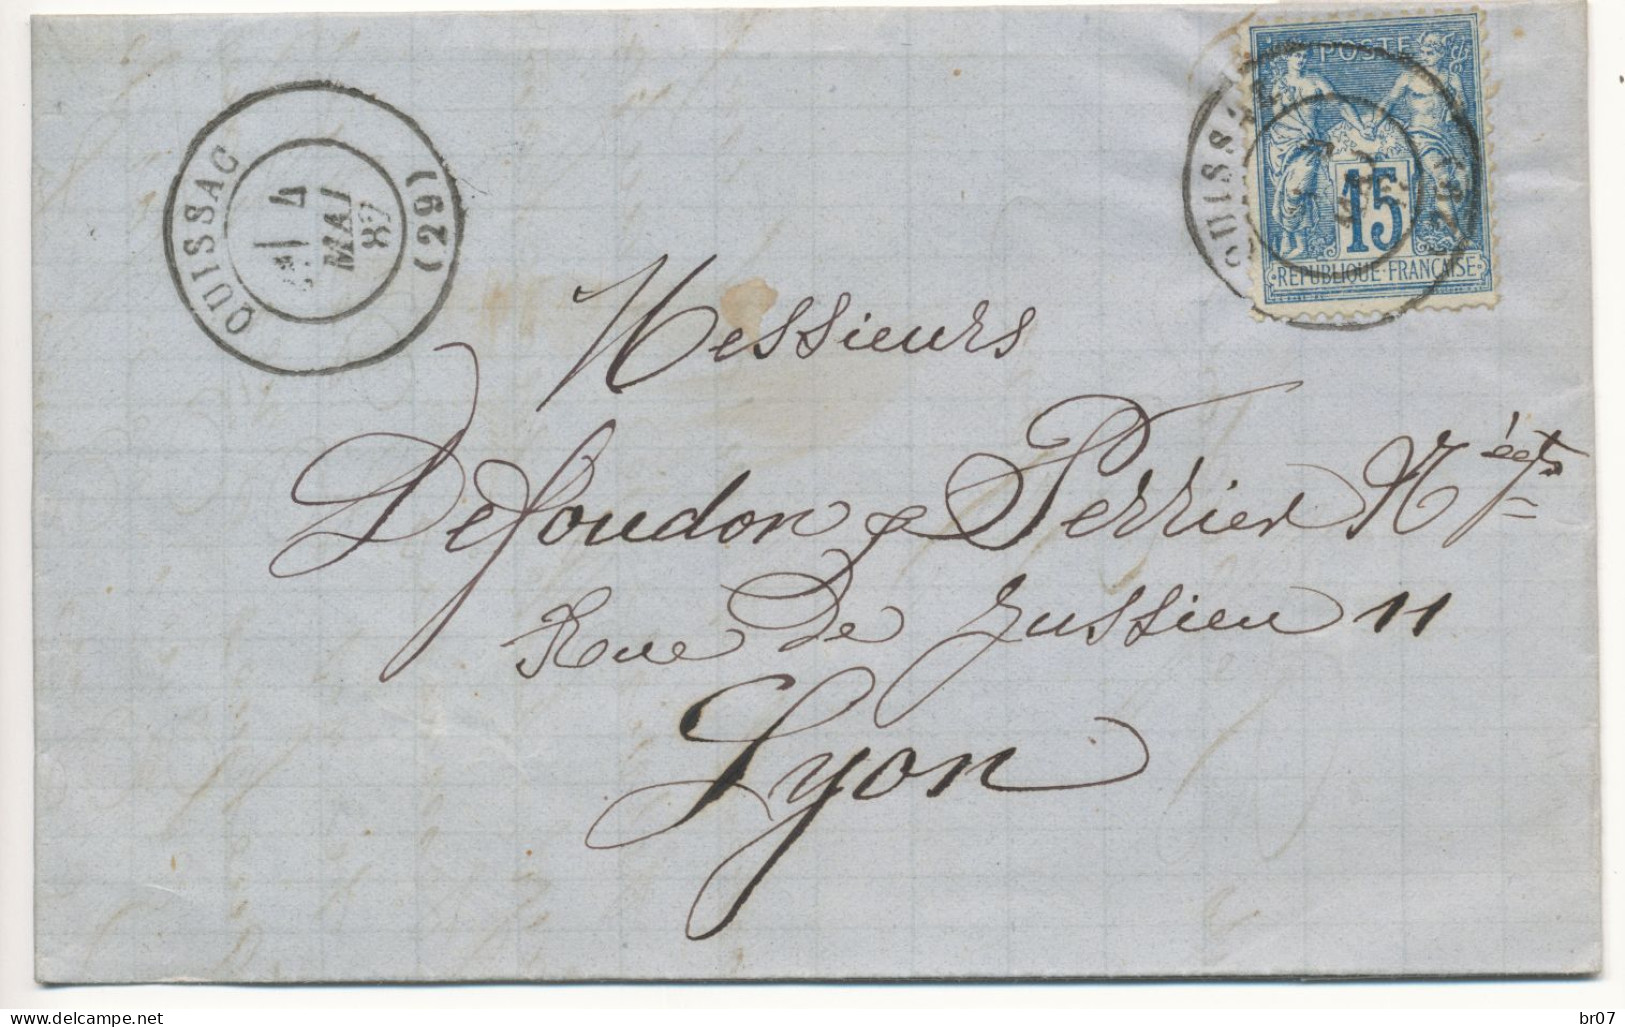 QUISSAC
4
MAI
87
(29)
POSTE
15
REPUBLIQUE FRANÇAISE
QUISSAC
Messieurs
Defoudon & Perrier Néets
Rue De Jussieu 11
Lyon
www.delcampe.net
br07